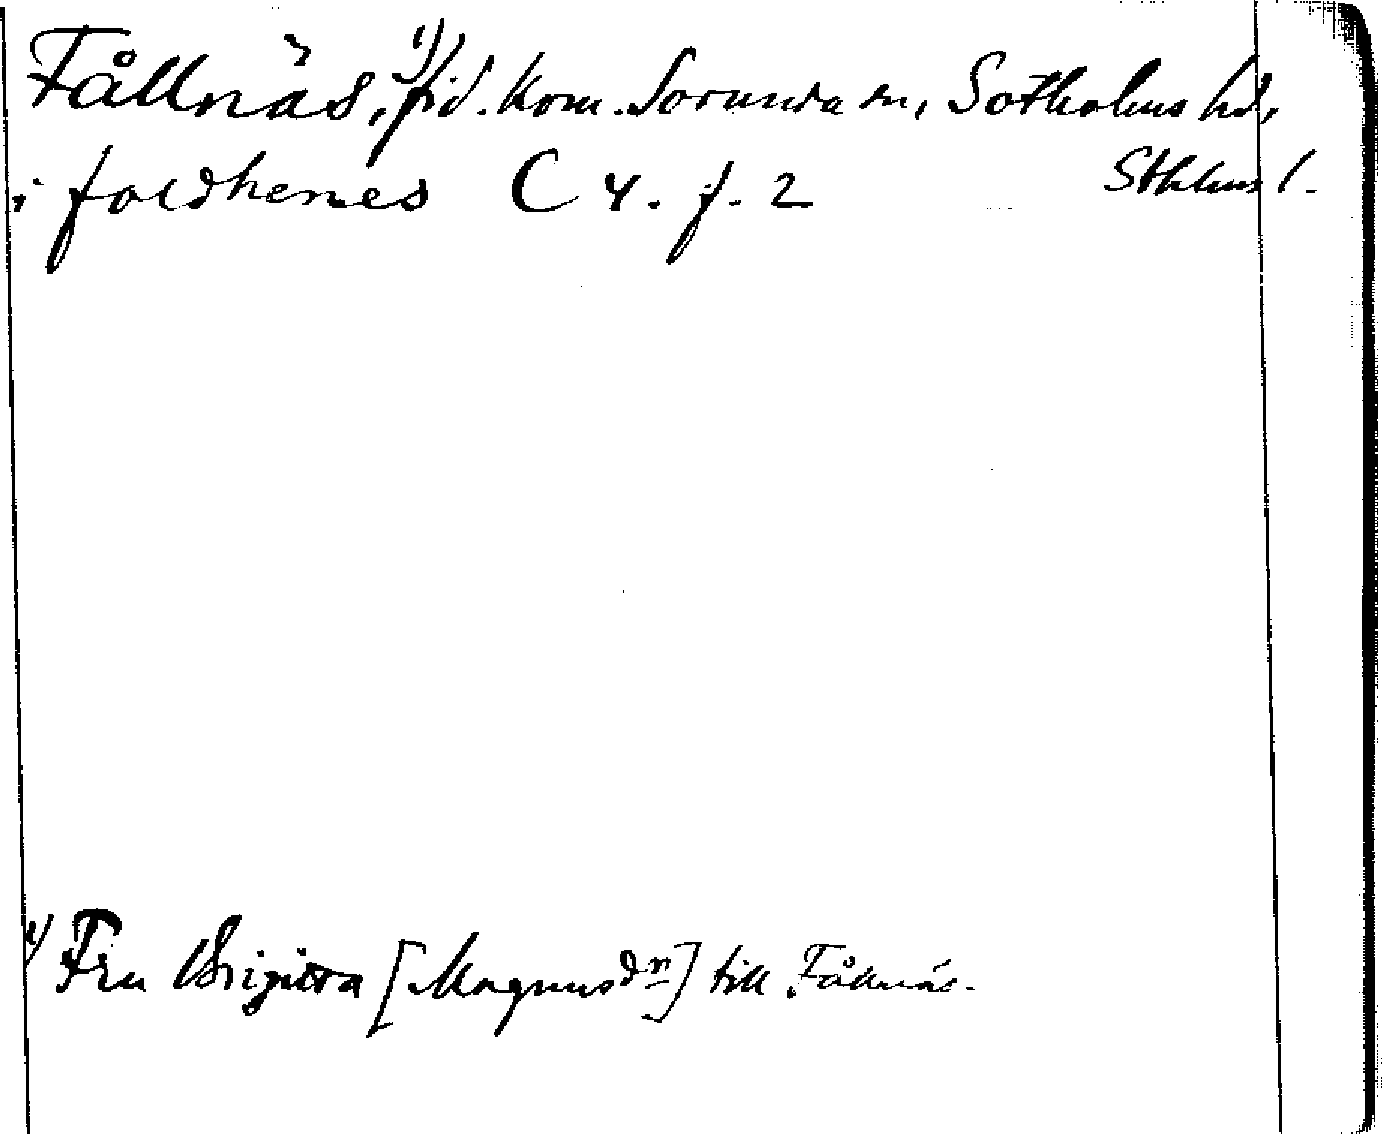 Fållnäs,¹⁾ fid. kom. Sorunda sn, Sotholms hd,
Sthlms l.
i foldhenes C 4. f. 2
¹⁾ Fru Birgitta [Magnusdr] till Fållnäs.